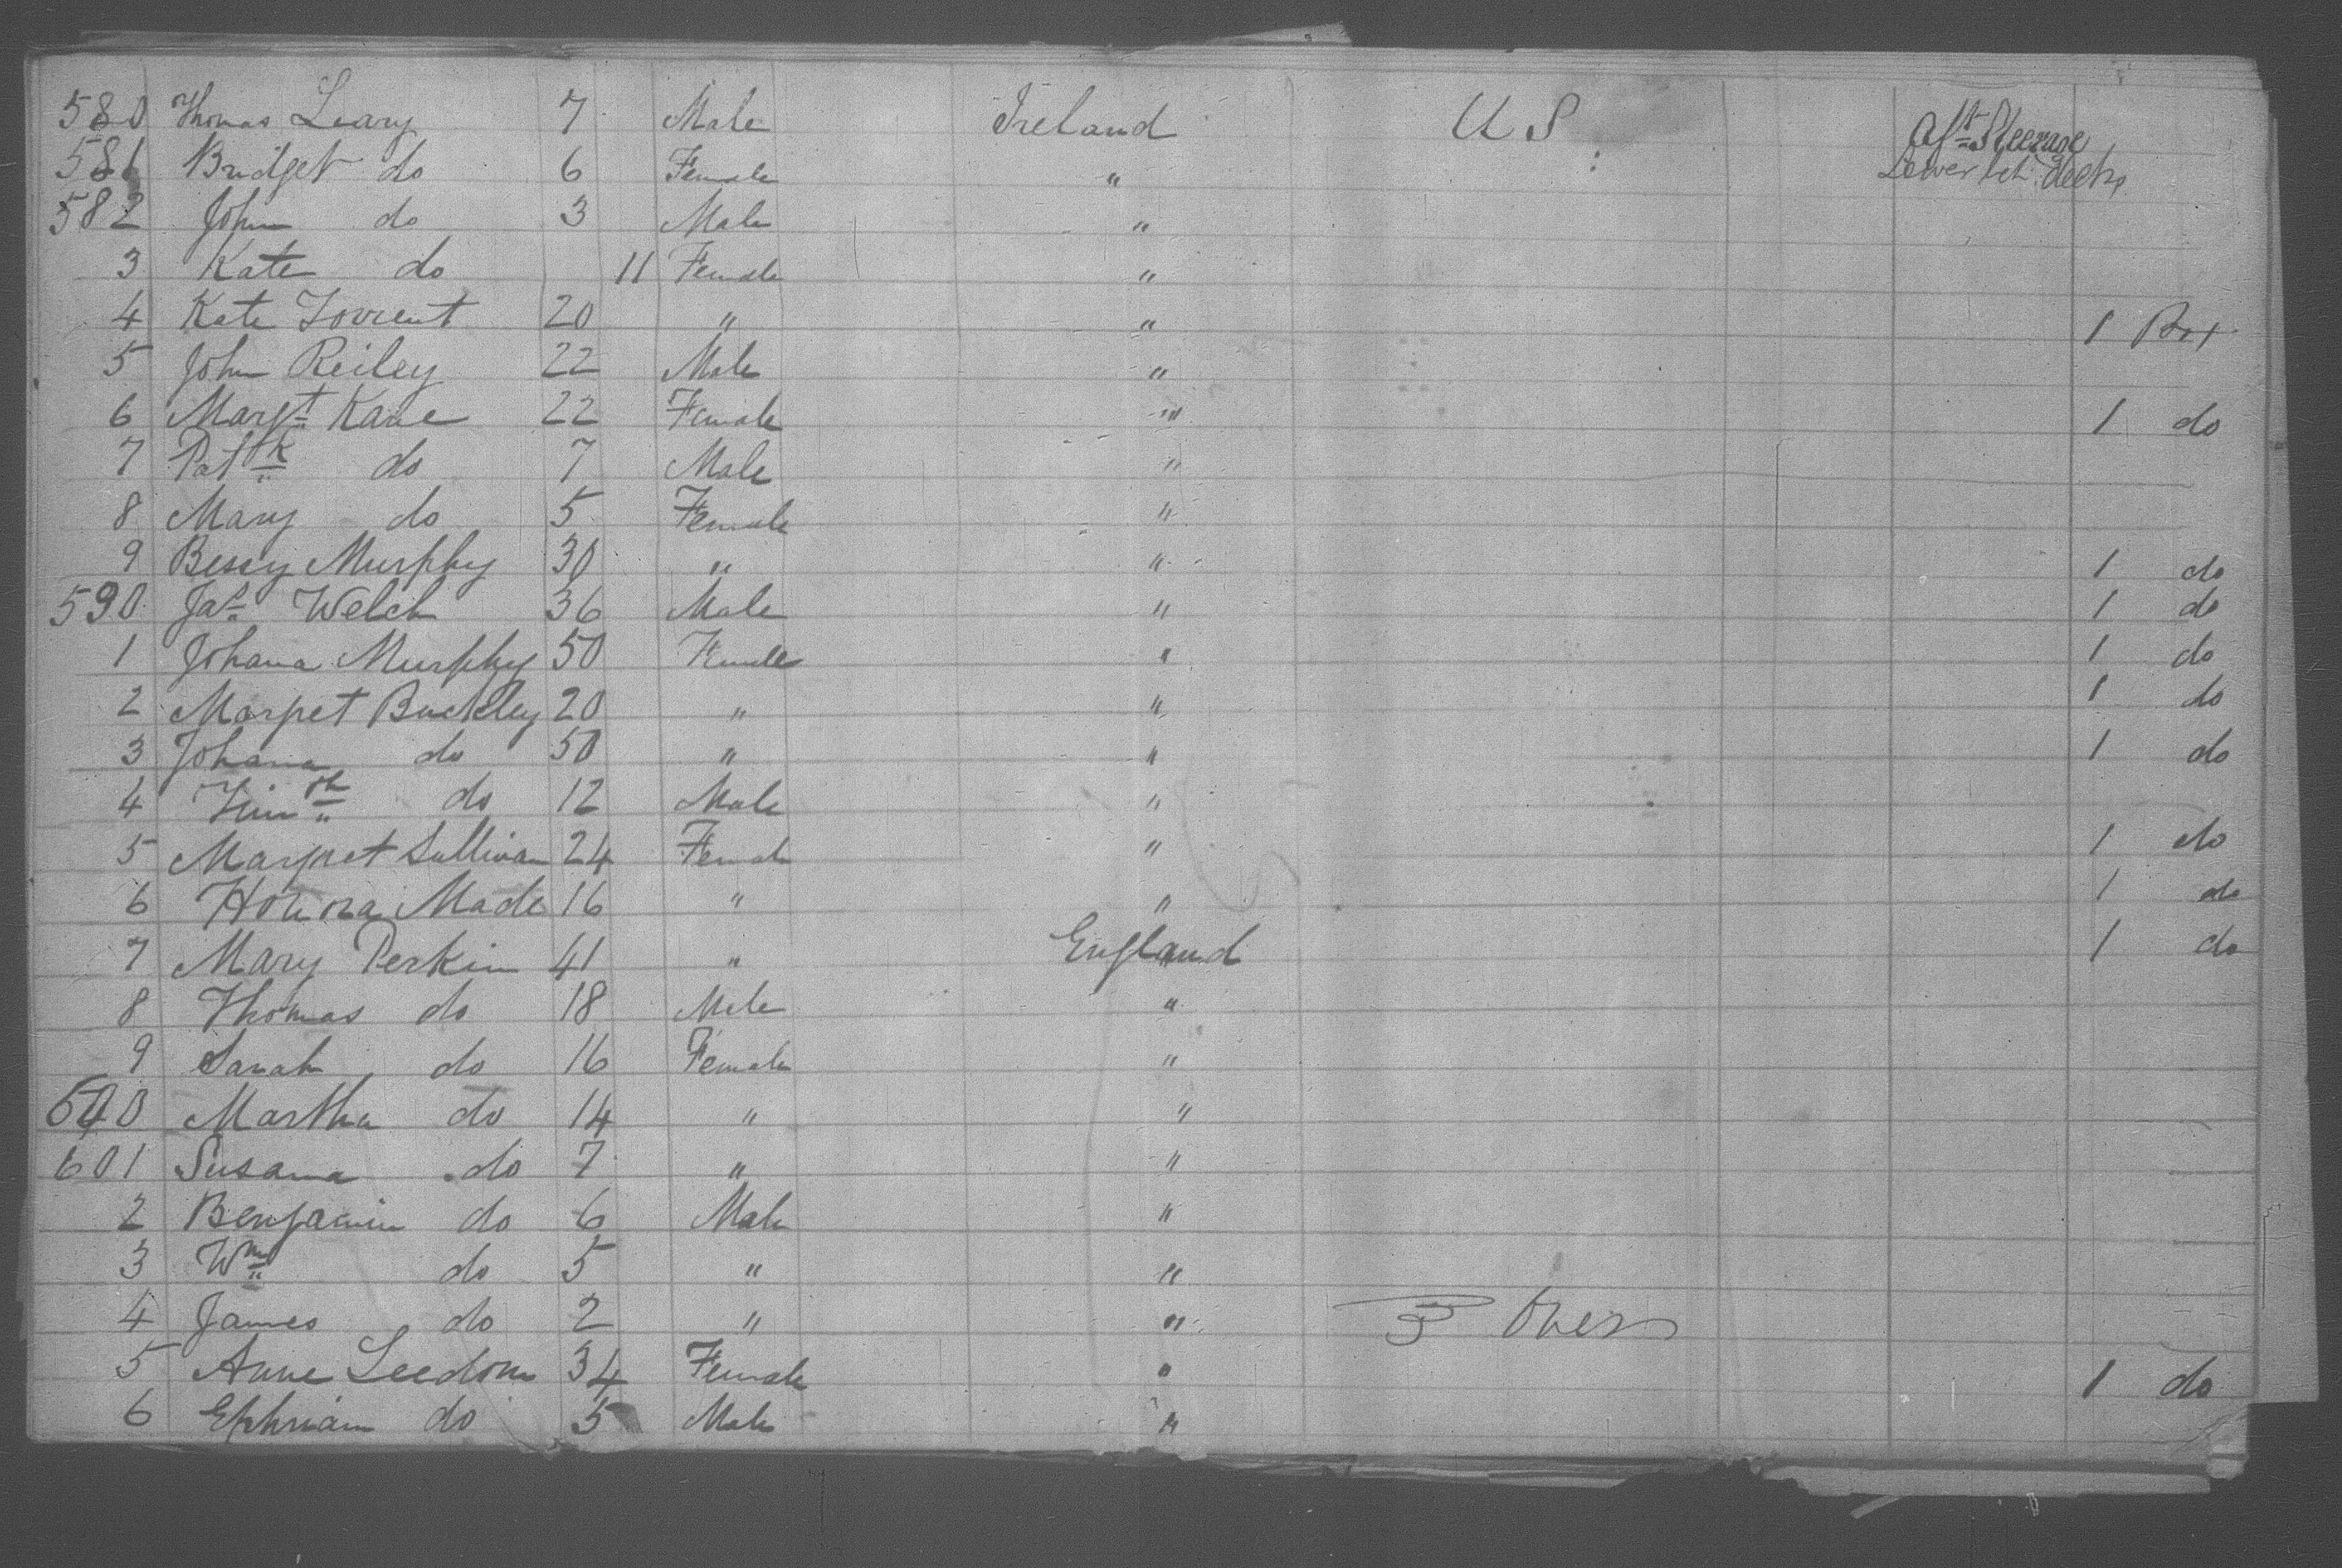 580 Thomas Leary 7 Male Ireland U S Aft Steerage
581 Bridget do 6 Female " Lower bet. decks
582 John do 3 Male "
3 Kate do 11 Female "
4 Kate Torrent 20 " " 1 Box
5 John Reiley 22 Male "
6 Margt Kane 22 Female " 1 do
7 Patk do 7 Male "
8 Mary do 5 Female "
9 Bessy Murphy 30 " " 1 do
590 Jas Welch 36 Male " 1 do
1 Johana Murphy 50 Female " 1 do
2 Marget Buckley 20 " " 1 do
3 Johana do 50 " " 1 do
4 Timth do 12 Male "
5 Marget Sullivan 24 Female " 1 do
6 Honora Made 16 " " 1 do
7 Mary Perkin 41 " England 1 do
8 Thomas do 18 Male "
9 Sarah do 16 Female "
600 Martha do 14 " "
601 Susana do 7 " "
2 Benjamin do 6 Male "
3 Wm do 5 " "
4 James do 2 " " Over
5 Anne Leedom 34 Female " 1 do
6 Ephriam do 5 Male "